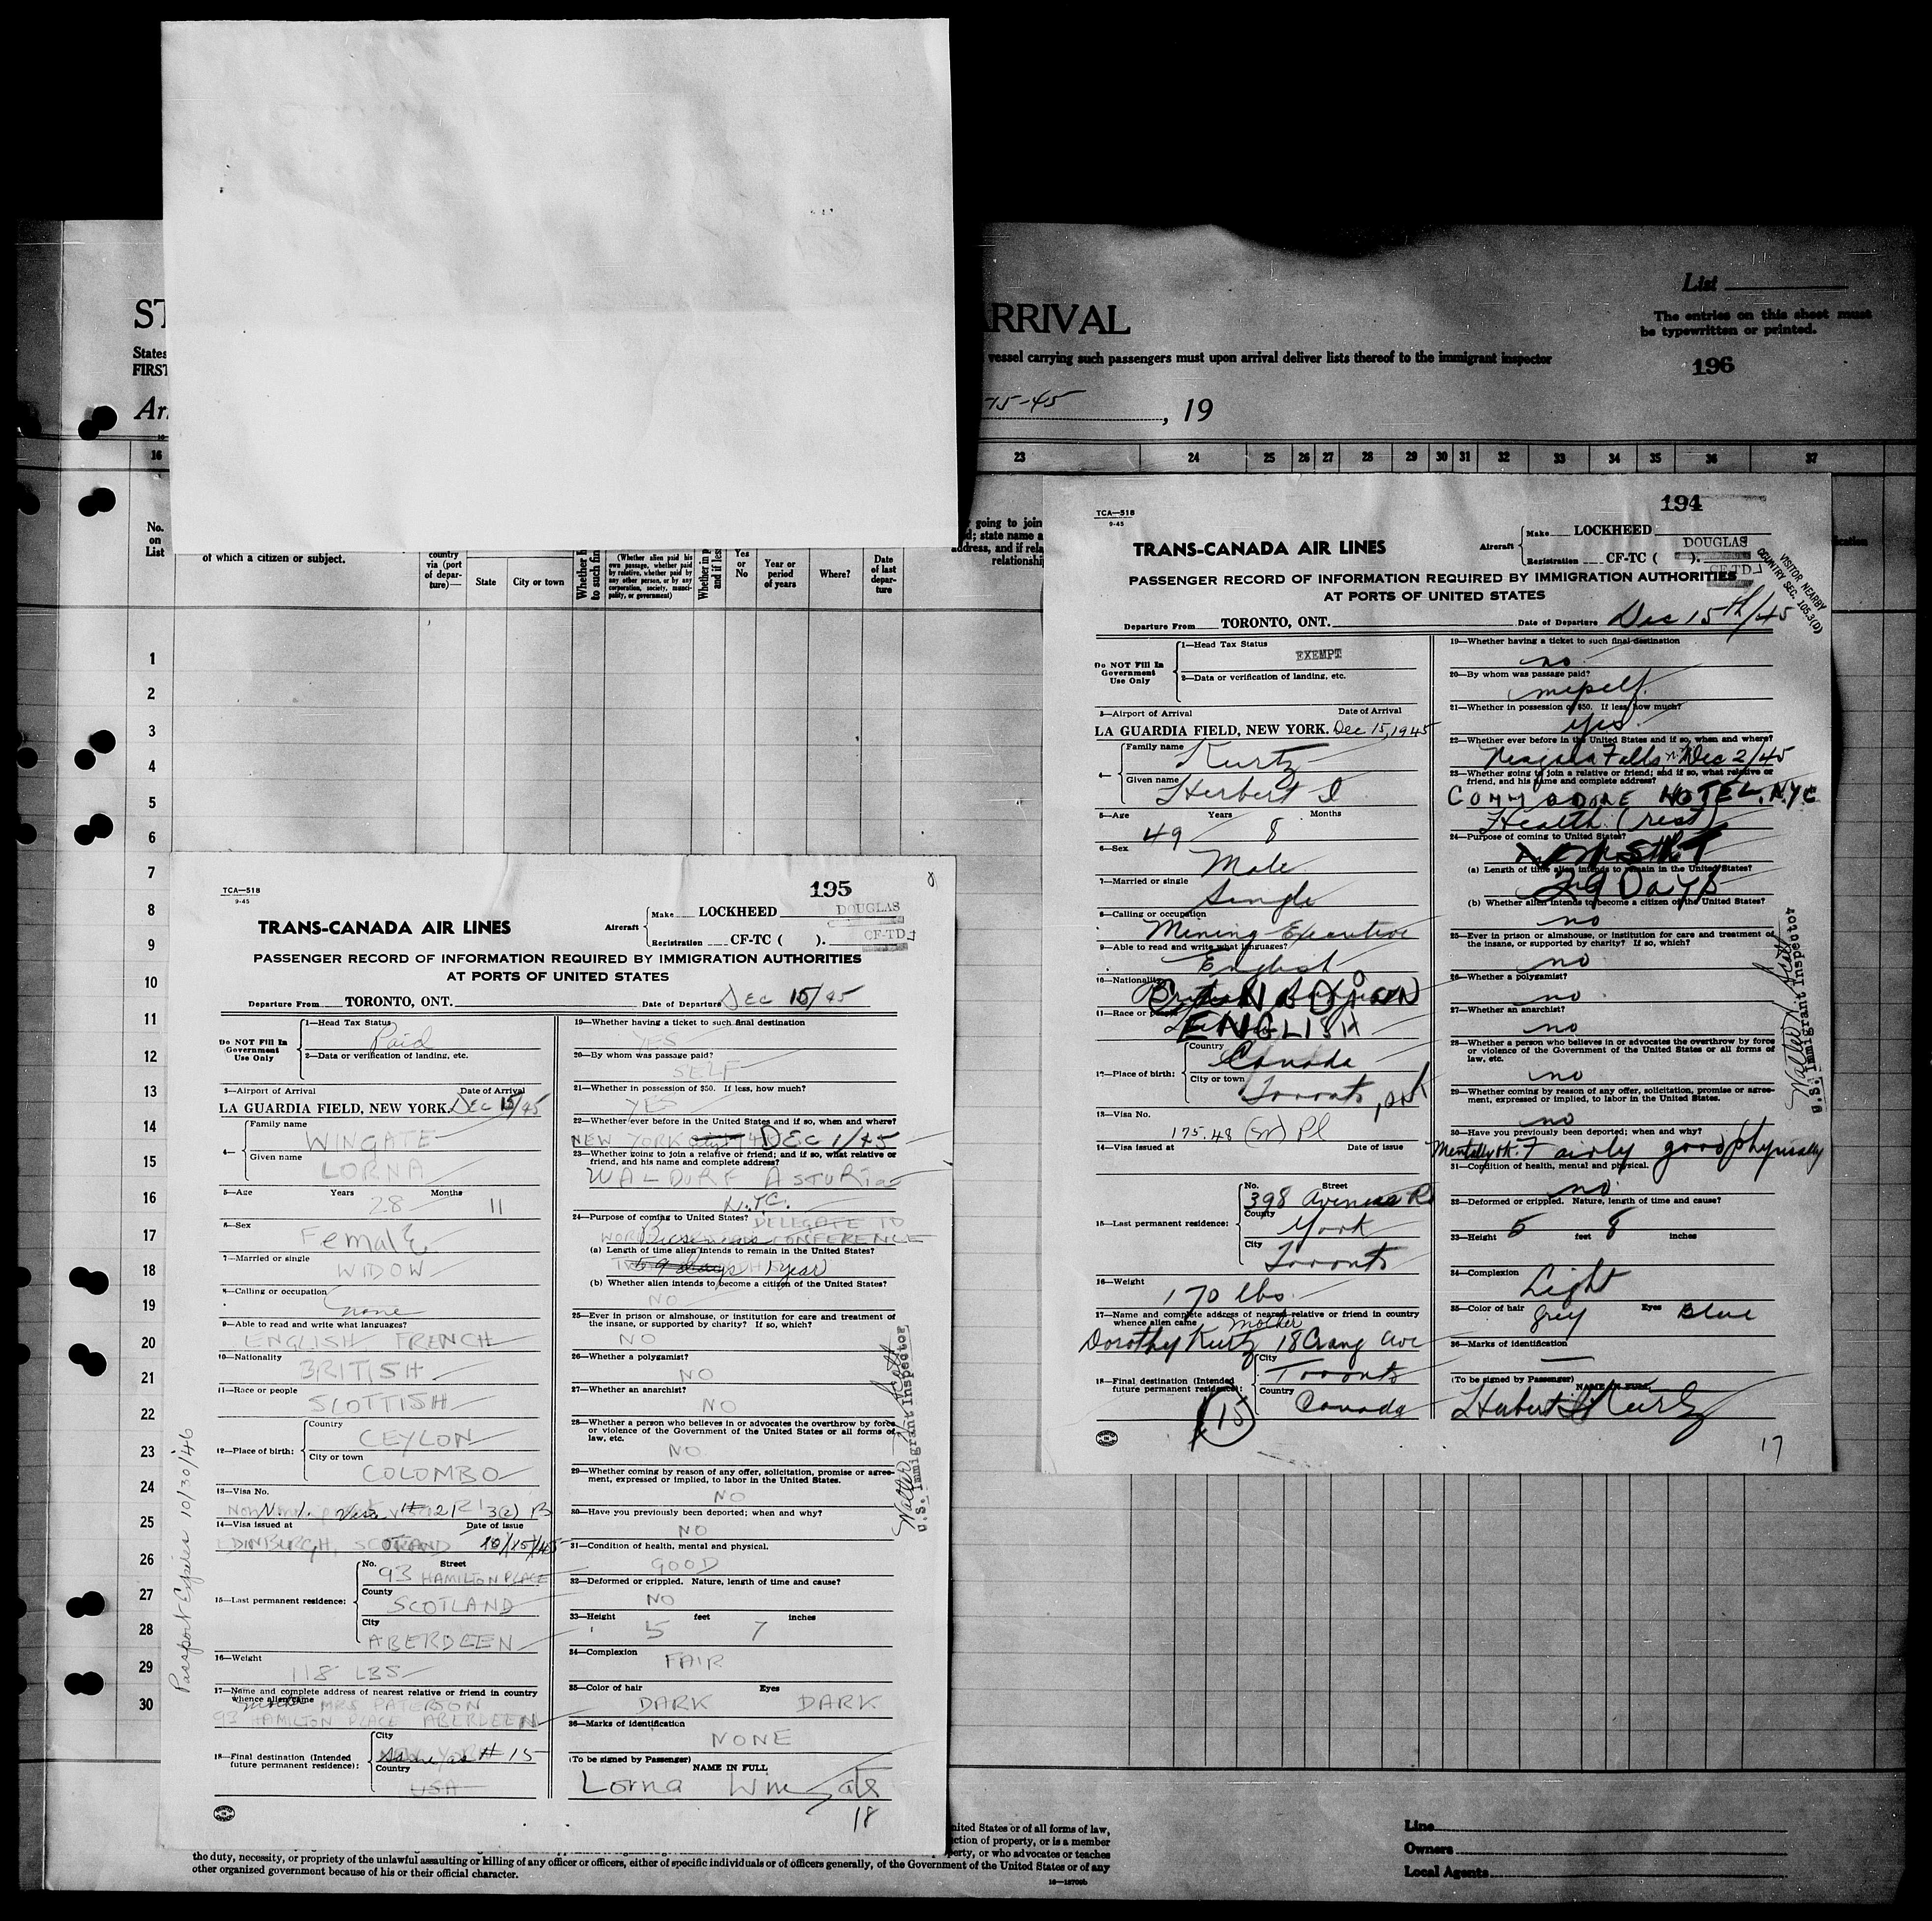 ST
ARRIVAL
List
The entries on this sheet must
be typewritten or printed.
States
vessel carrying such passengers must upon arrival deliver lists thereof to the immigrant inspector
FIRST
196
15-45
, 19
16
23 24 25 26 27 28 29 30 31 32 33 34 35 36 37
No.
on
List
of which a citizen or subject.
country
via (port
of depar-
ture)—
State
City or town
(Whether alien paid his
own passage, whether paid
by relative, whether paid by
any other person, or by any
corporation, society, munici-
pality, or government)
Yes
or
No
Year or
period
of years
Where?
Date
of last
depar-
ture
1
2
3
4
5
6
7
8
9
10
11
12
13
14
15
16
17
18
19
20
21
22
23
24
25
26
27
28
29
30
TCA—518
9-45
194
TRANS-CANADA AIR LINES
Aircraft
Make LOCKHEED
DOUGLAS
Registration CF-TC ( ).
CF-TD
VISITOR NEARBY
COUNTRY SEC. 105.3(D)
PASSENGER RECORD OF INFORMATION REQUIRED BY IMMIGRATION AUTHORITIES
AT PORTS OF UNITED STATES
Departure From TORONTO, ONT. Date of Departure Dec 15th/45
Do NOT Fill In
Government
Use Only
1—Head Tax Status
EXEMPT
2—Data or verification of landing, etc.
3—Airport of Arrival Date of Arrival
LA GUARDIA FIELD, NEW YORK. Dec 15, 1945
4—
Family name
Kurtz
Given name
Herbert I
5—Age Years Months
49 8
6—Sex
Male
7—Married or single
Single
8—Calling or occupation
Mining Executive
9—Able to read and write what languages?
English
10—Nationality
CANADIAN
11—Race or people
ENGLISH
12—Place of birth:
Country
Canada
City or town
Toronto, Ont
13—Visa No.
175.48
14—Visa issued at Date of issue
15—Last permanent residence:
No. Street
398 Avenue Rd
County
York
City
Toronto
16—Weight
170 lbs.
17—Name and complete address of nearest relative or friend in country
whence alien came
mother
Dorothy Kurtz 18 Crang Ave
18—Final destination (Intended
future permanent residence):
City
Toronto
Country
Canada
15
19—Whether having a ticket to such final destination
no
20—By whom was passage paid?
myself
21—Whether in possession of $50. If less, how much?
yes
22—Whether ever before in the United States and if so, when and where?
Niagara Falls NY Dec 2/45
23—Whether going to join a relative or friend; and if so, what relative or
friend, and his name and complete address?
COMMODORE HOTEL, N.Y.C
Health (rest)
24—Purpose of coming to United States?
VISIT
(a) Length of time alien intends to remain in the United States?
29 Days
(b) Whether alien intends to become a citizen of the United States?
no
25—Ever in prison or almshouse, or institution for care and treatment of
the insane, or supported by charity? If so, which?
no
26—Whether a polygamist?
no
27—Whether an anarchist?
no
28—Whether a person who believes in or advocates the overthrow by force
or violence of the Government of the United States or all forms of
law, etc.
no
29—Whether coming by reason of any offer, solicitation, promise or agree-
ment, expressed or implied, to labor in the United States.
no
30—Have you previously been deported; when and why?
Mentally OK. Fairly good physically
31—Condition of health, mental and physical.
no
32—Deformed or crippled. Nature, length of time and cause?
33—Height 5 feet 8 inches
34—Complexion
Light
35—Color of hair Eyes
Grey Blue
36—Marks of identification
—
(To be signed by Passenger)
NAME IN FULL
Herbert I Kurtz
17
Walter Scott
U.S. Immigrant Inspector
TCA—518
9-45
195
8
TRANS-CANADA AIR LINES
Aircraft
Make LOCKHEED
DOUGLAS
Registration CF-TC ( ).
CF-TD
PASSENGER RECORD OF INFORMATION REQUIRED BY IMMIGRATION AUTHORITIES
AT PORTS OF UNITED STATES
Departure From TORONTO, ONT. Date of Departure DEC 15/45
Do NOT Fill In
Government
Use Only
1—Head Tax Status
Paid
2—Data or verification of landing, etc.
3—Airport of Arrival Date of Arrival
LA GUARDIA FIELD, NEW YORK. DEC 15/45
4—
Family name
WINGATE
Given name
LORNA
5—Age Years Months
28 11
6—Sex
FEMALE
7—Married or single
WIDOW
8—Calling or occupation
none
9—Able to read and write what languages?
ENGLISH FRENCH
10—Nationality
BRITISH
11—Race or people
SCOTTISH
12—Place of birth:
Country
CEYLON
City or town
COLOMBO
13—Visa No.
14—Visa issued at Date of issue
EDINBURGH, SCOTLAND 10/15/45
15—Last permanent residence:
No. Street
93 HAMILTON PLACE
County
SCOTLAND
City
ABERDEEN
16—Weight
118 LBS
17—Name and complete address of nearest relative or friend in country
whence alien came
mother MRS PATERSON
93 HAMILTON PLACE ABERDEEN
18—Final destination (Intended
future permanent residence):
City
same as # 15
Country
USA
Passport Expires 10/30/46
19—Whether having a ticket to such final destination
YES
20—By whom was passage paid?
SELF
21—Whether in possession of $50. If less, how much?
YES
22—Whether ever before in the United States and if so, when and where?
NEW YORK DEC 1/45
23—Whether going to join a relative or friend; and if so, what relative or
friend, and his name and complete address?
WALDORF ASTORIA
N.Y.C.
24—Purpose of coming to United States? DELEGATE TO
CONFERENCE
(a) Length of time alien intends to remain in the United States?
1 year
(b) Whether alien intends to become a citizen of the United States?
NO
25—Ever in prison or almshouse, or institution for care and treatment of
the insane, or supported by charity? If so, which?
NO
26—Whether a polygamist?
NO
27—Whether an anarchist?
NO
28—Whether a person who believes in or advocates the overthrow by force
or violence of the Government of the United States or all forms of
law, etc.
NO
29—Whether coming by reason of any offer, solicitation, promise or agree-
ment, expressed or implied, to labor in the United States.
NO
30—Have you previously been deported; when and why?
NO
31—Condition of health, mental and physical.
GOOD
32—Deformed or crippled. Nature, length of time and cause?
NO
33—Height feet inches
5 7
34—Complexion
FAIR
35—Color of hair Eyes
DARK DARK
36—Marks of identification
NONE
(To be signed by Passenger)
NAME IN FULL
Lorna Wingate
18
Walter Scott
U.S. Immigrant Inspector
United States or of all forms of law,
the duty, necessity, or propriety of the unlawful assaulting or killing of any officer or officers, either of specific individuals or of officers generally, of the Government of the United States or of any
other organized government because of his or their official character.
Line
Owners
Local Agents